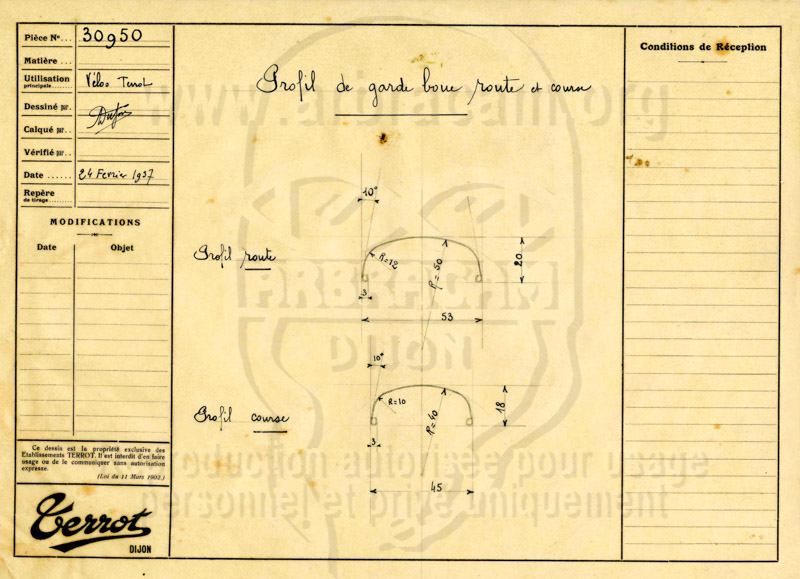 Pièce Nº... 30950
Matière ...
Utilisation principale...... Vélos Terrot
Dessiné par.
Calqué par..
Vérifié par..
Date ...... 24 Fevrier 1937
Repère
de tirage........
MODIFICATIONS
Date Objet
Ce dessin est la propriété exclusive des
Etablissements TERROT. Il est interdit d'en faire
usage ou de le communiquer sans autorisation
expresse.
(Loi du 11 Mars 1902.)
Terrot
DIJON
Profil de garde boue route et course
10°
Profil route
R=12
R=50
20
3
53
10°
Profil course
R=10
R=40
18
3
45
Conditions de Réception
www.arbracam.org
ARBRACAM
DIJON
Reproduction autorisée pour usage
personnel et privé uniquement